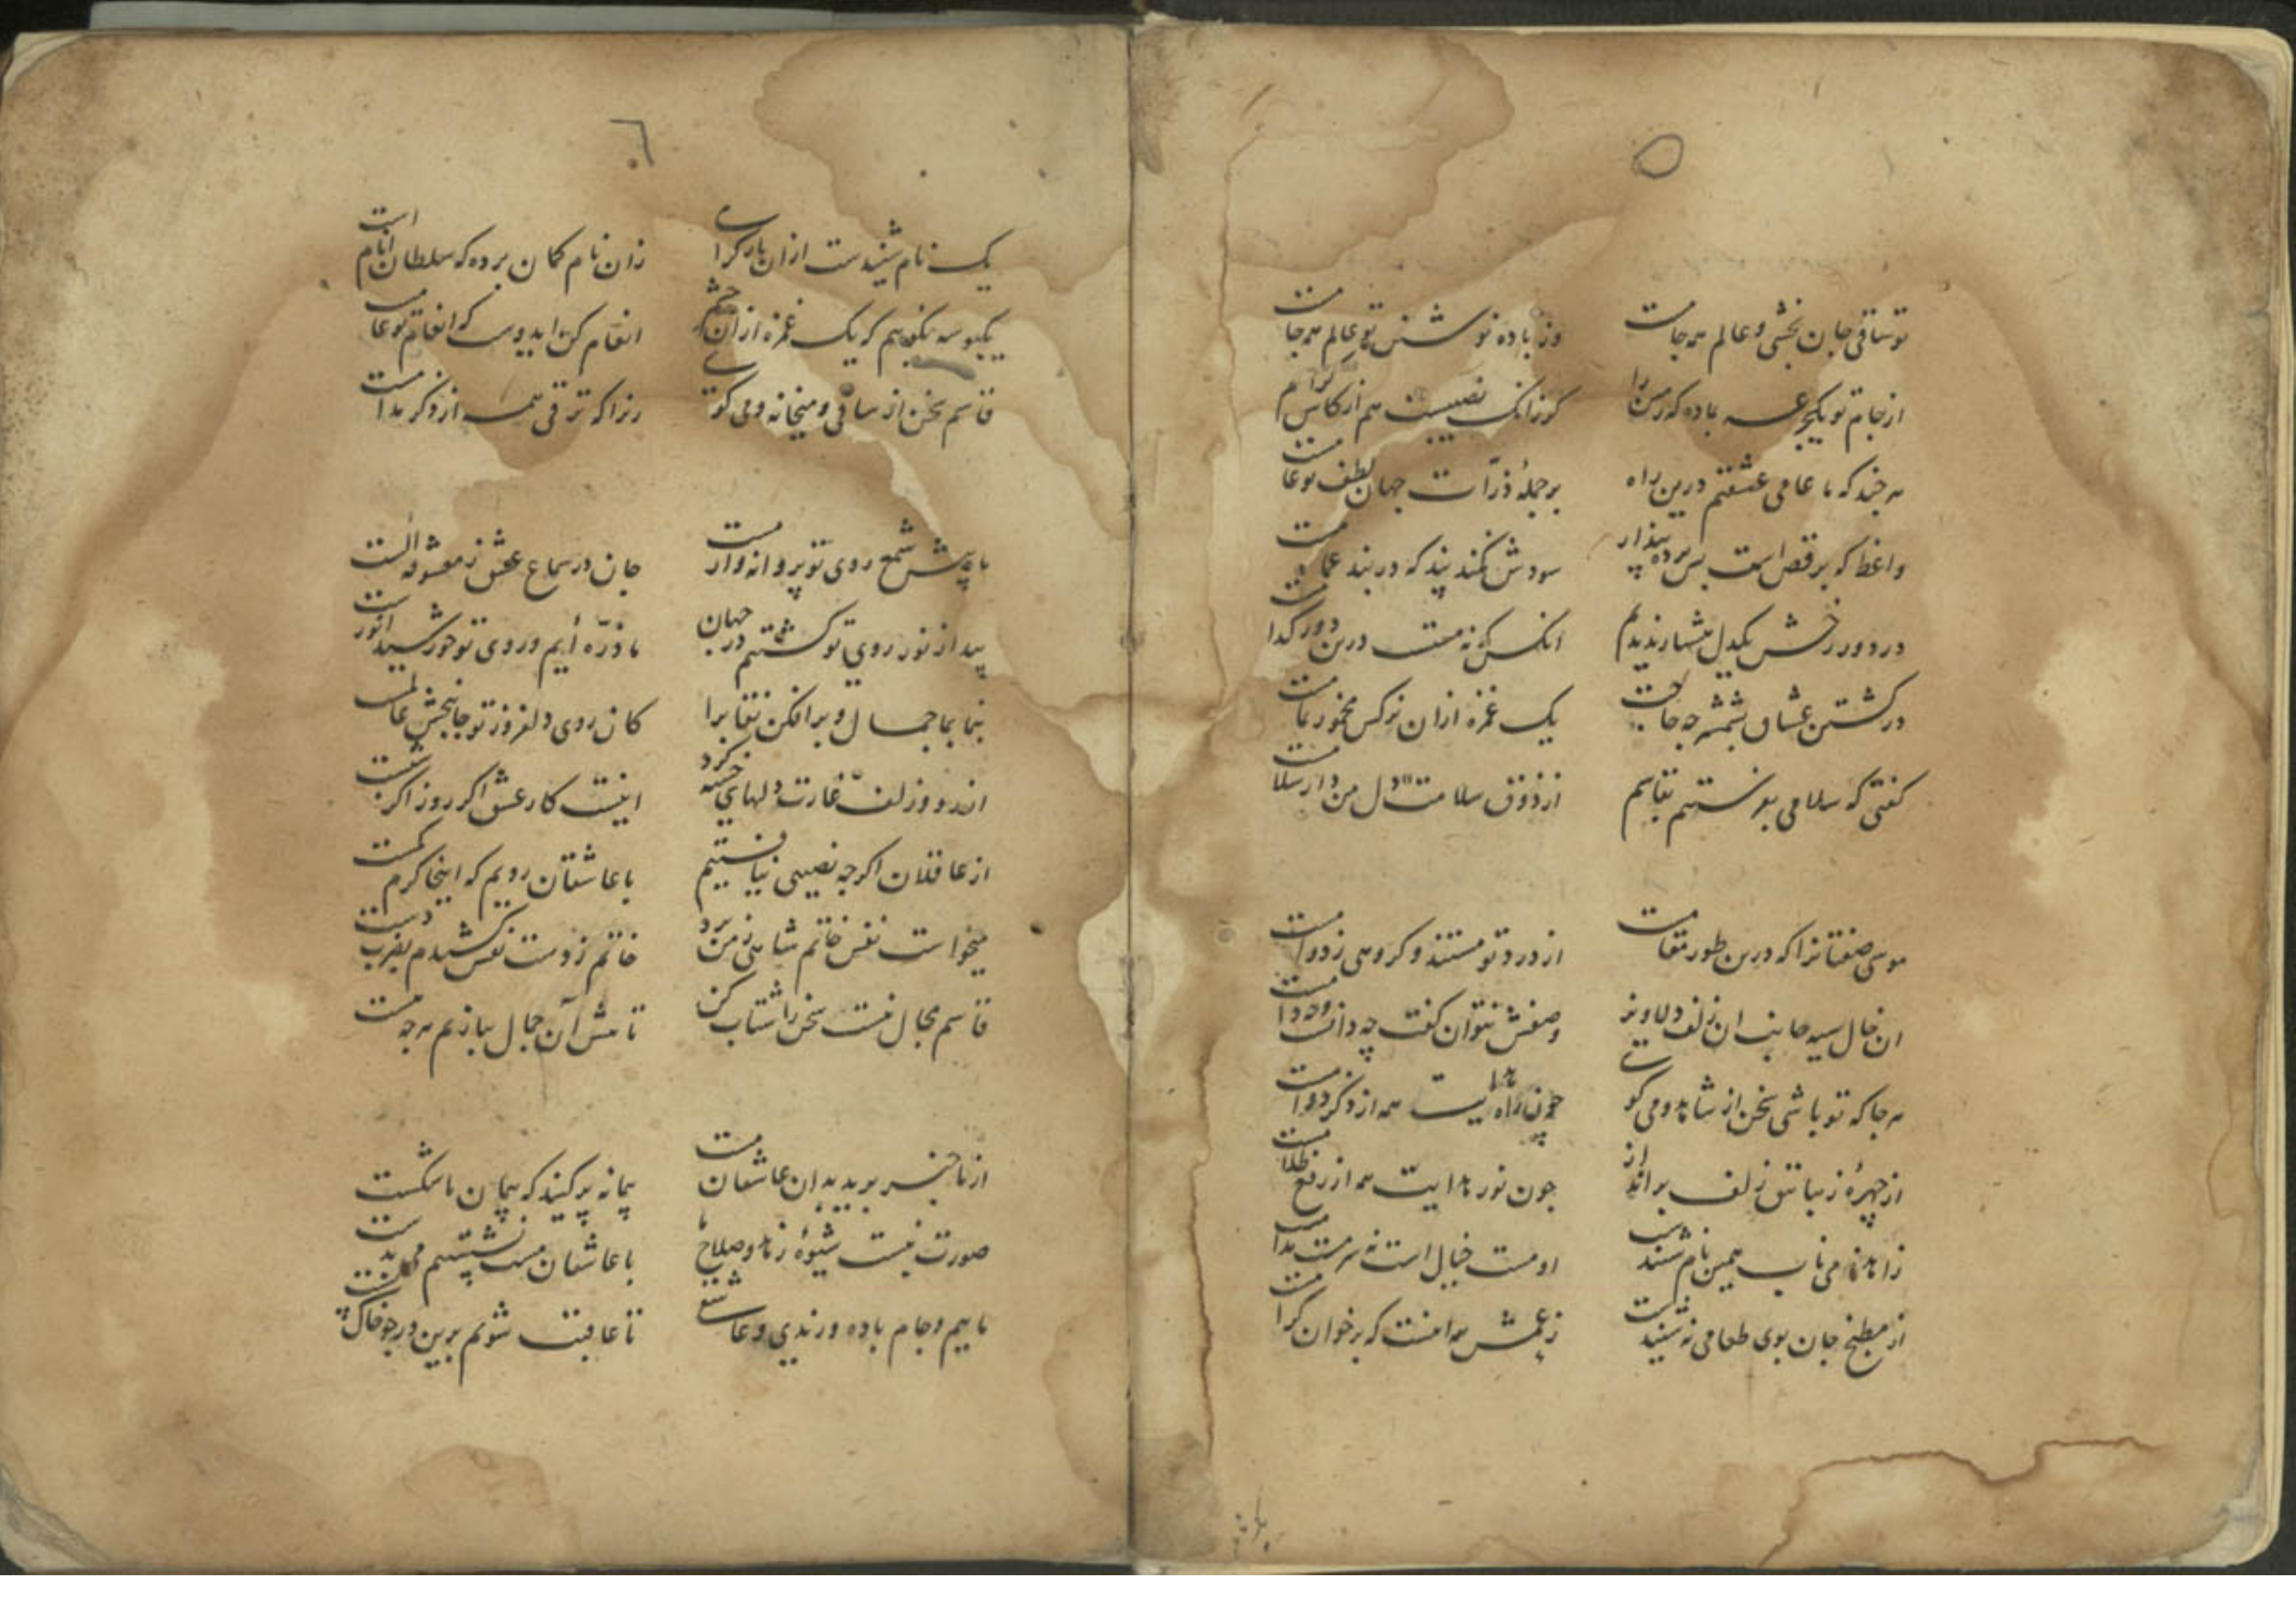 ۵
تو ساقی جان بخشی و عالم همه جامست وز باده نوشین تو عالم همه جامست
از جام تو یکجرعه بماده که زمین را کورزانک نصیبست هم از کاس کرام
هر چند که ما عامی عشقیم درین راه بر جملهٔ ذرّات جهان لطف تو عامست
واعظ که برقص است پس پرده پندار سودش نکند پند که در بند عمامست
در دور رخش یکدل هشیار ندیدم انکس که نه مستست درین دور کدامست
در کشتن عشاق بشمشیر چه حاجت یک غمزه ازان نرکس مخمور تمامست
کفتی که سلامی بفرستیم بقاسم از ذوق سلامت دل من دار سلامست
موسی صفتانرا که درین طور مقامست از درد تو مستند و کروهی ز دوامست
ان خال سیه جانب ان زلف دلاویز وصفش نتوان کفت چه دانست و چه دامست
هر جا که تو باشی سخن از شاهد و می کوی چون راه هدایت همه از ذکر دوامست
از چهرهٔ زیبا تتق زلف برانداز چون نور هدایت همه از رفع ظلامست
زاهد ز می ناب همین نام شنیدست او مست خیال است نه سرمست مدامست
از مطبخ جان بوی طعامی نشنیدست زعمش همه انست که بر خوان کرامست
۶
یک نام شنیدست ازان یار کرامی زان نام کمان برده که سلطان انامست
یکبوسه نکویم که یک غمزه ازان چشم انعام کن ای دوست که انعام تو عامست
قاسم سخن از ساقی و میخانه و می کوی زیرا که ترقی همه از ذکر مدامست
ما پیش شمع روی تو پروانه وار مست جان در سماع عشق ز معشوقه الست
پیدا ز نور روی تو کشتیم در جهان ما ذرّه ایم و روی تو خورشید انورست
بنما بما جمال و برافکن نقابرا کان روی دلفروز تو جانبخش عالمست
از رو و زلف غارت دلهای خسته کرد اینست کار عشق اکر روز اکر شبست
از عاقلان اکرچه نصیبی نیافتیم با عاشقان رویم که اینجا کرم کمست
میخواست نفس خاتم شاهی ز من برد خاتم ز دست نفس کشیدم بضرب دست
قاسم مجال نیست سخن را شتاب کن تا پیش آن جمال ببازیم هرچه هست
از ما خبر برید بدان عاشقان مست پیمانه پر کنید که پیمان ما شکست
صورت نبست شیوهٔ زهد و صلاح ما با عاشقان مست نشستیم می بدست
ماییم و جام باده و رندی و عاشقی تا عاقبت شویم برین در چو خاک پست